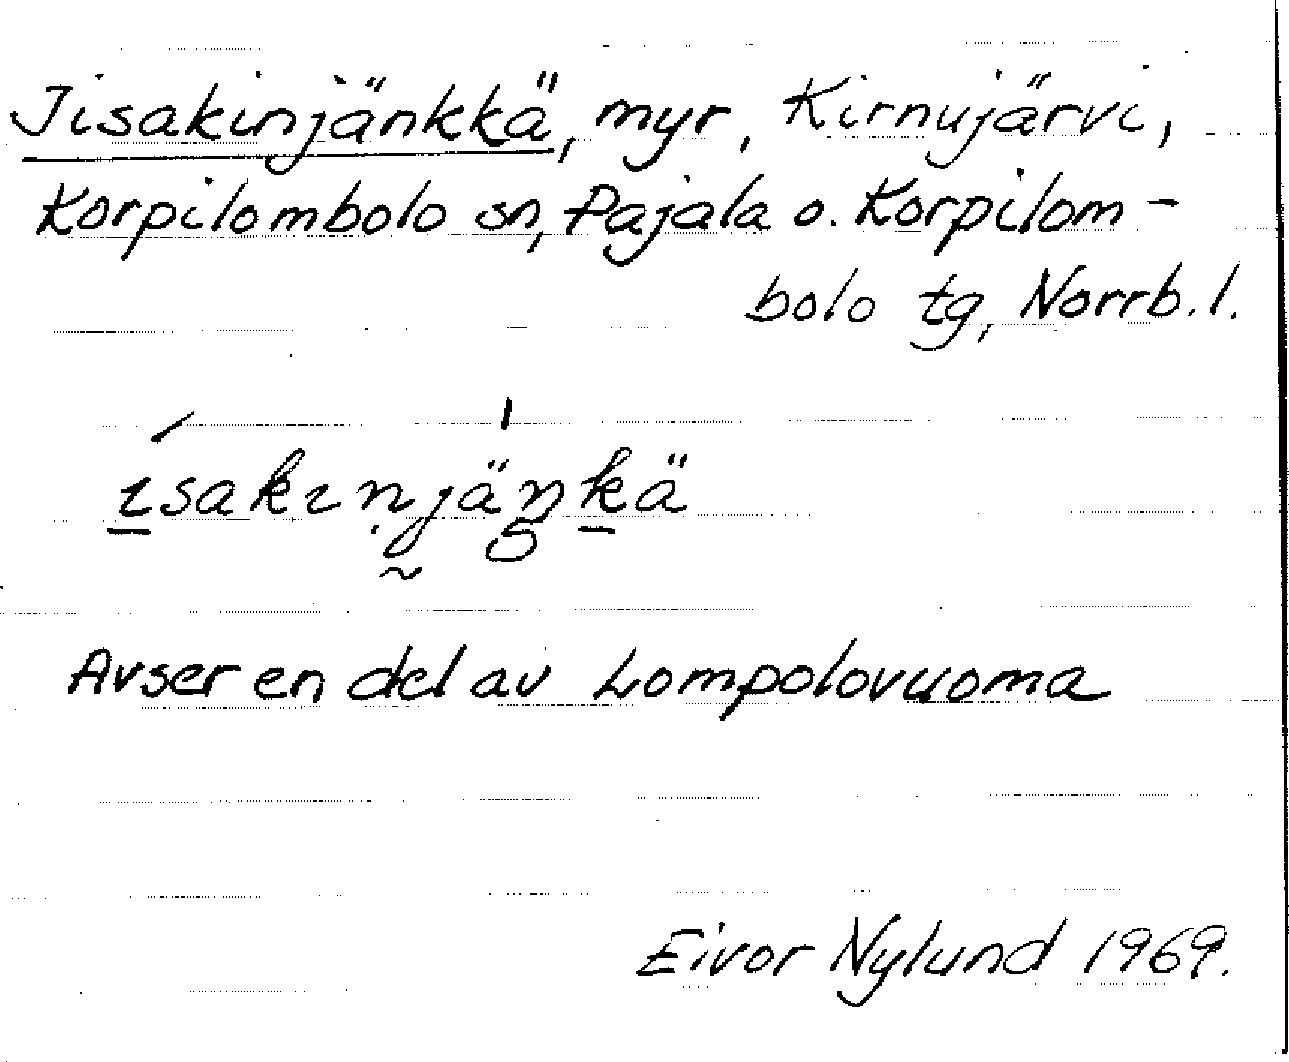 Jisakinjänkkä, myr, Kirnujärvi,
Korpilombolo sn, Pajala o. Korpilom-
bolo tg, Norrb. l.
ísakinjäŋkä
Avser en del av Lompolovuoma
Eivor Nylund 1969.